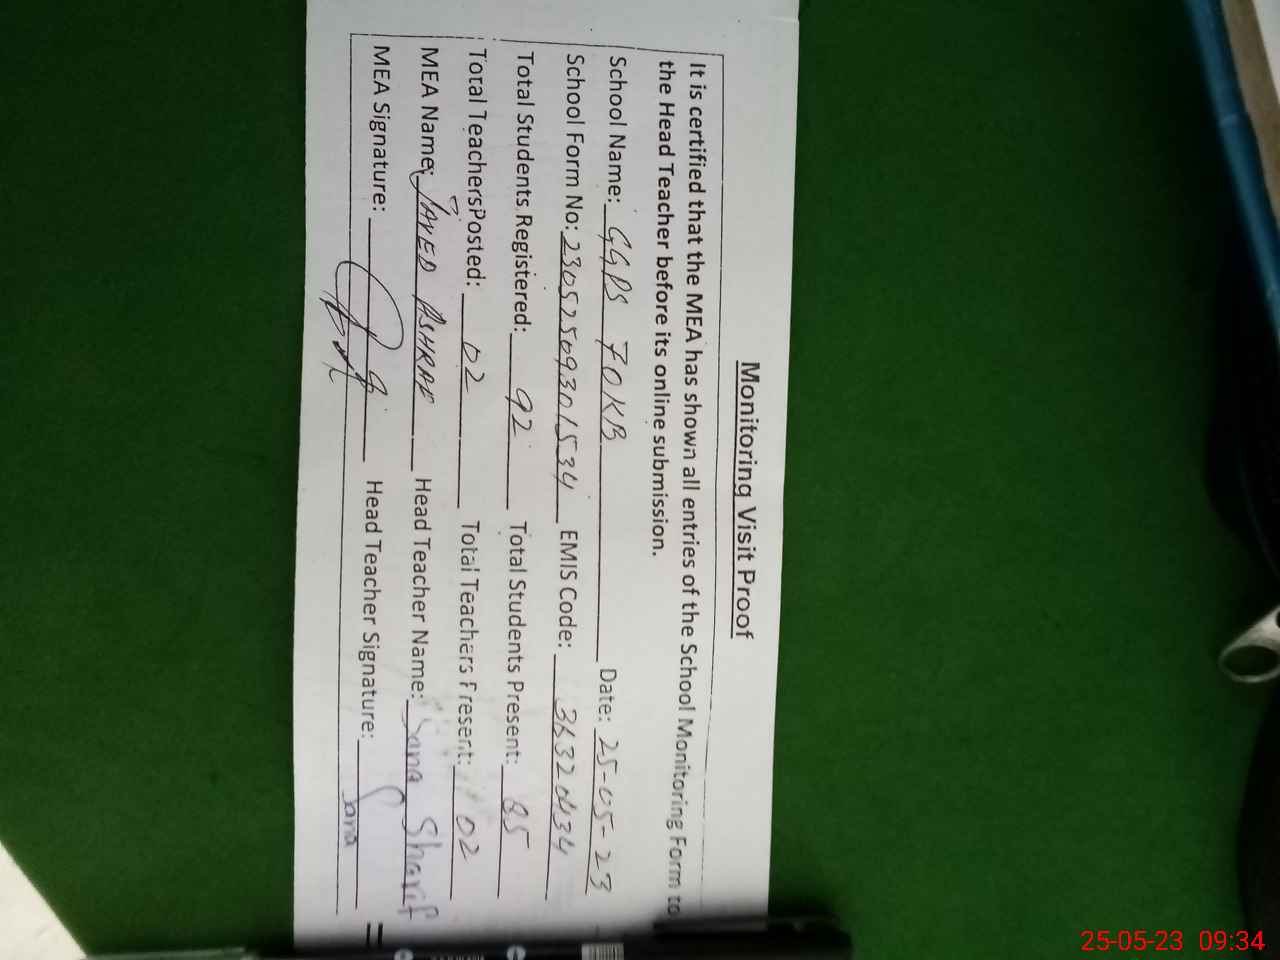 Monitoring Visit Proof
It is certified that the MEA has shown all entries of the School Monitoring Form to
the Head Teacher before its online submission.
School Name: GGPS 70KB Date: 25-05-23
School Form No: 23052509301534 EMIS Code:
Total Students Registered: 92 Total Students Present: 85
Total TeachersPosted: 02 Total Teachers Present: 02
MEA Name: JAVED ASHRAF Head Teacher Name: Sana Sharif
MEA Signature: Head Teacher Signature: Sana
25-05-23 09:34